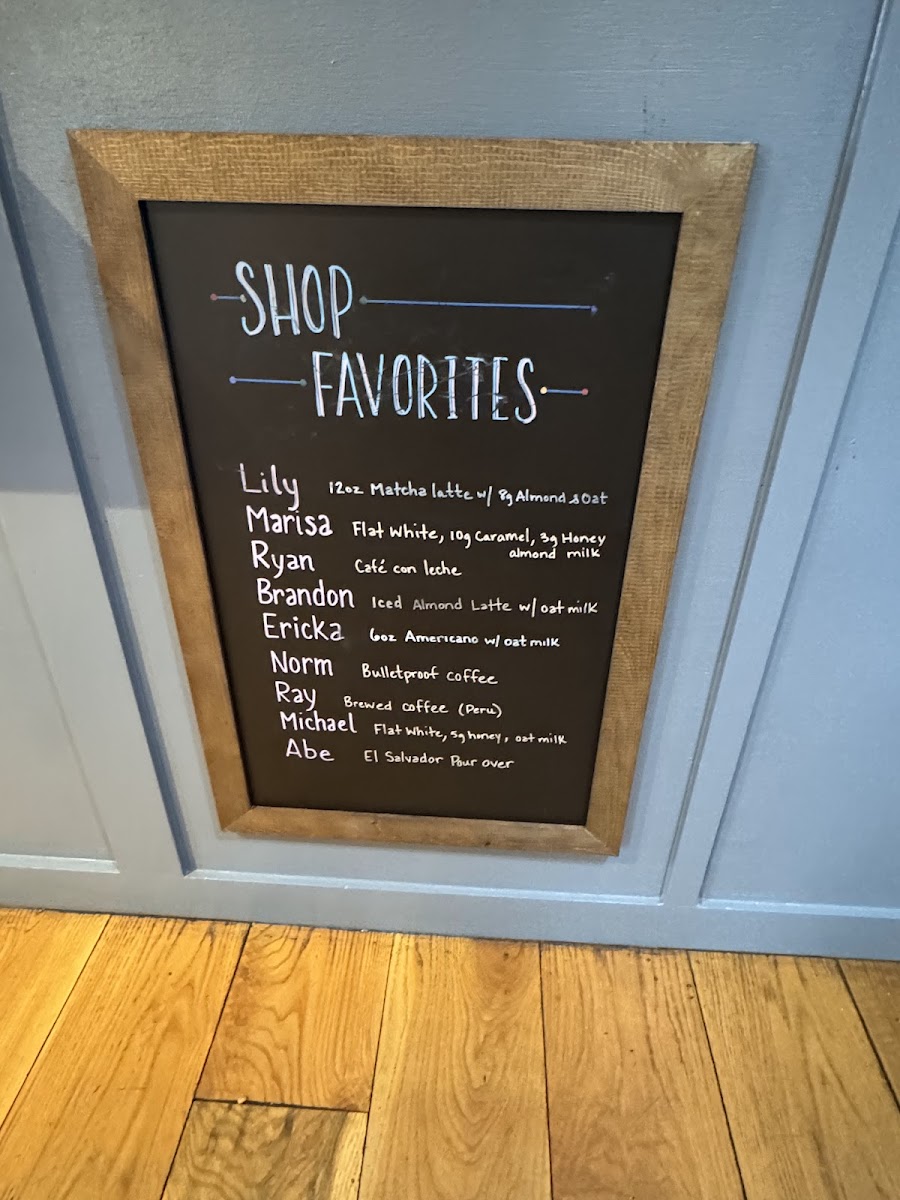 SHOP
FAVORITES
Lily 12oz Matcha latte w/ 8g Almond & Oat
Marisa Flat White, 10g Caramel, 3g Honey
almond milk
Ryan Café con leche
Brandon Iced Almond Latte w/ oat milk
Ericka 6oz Americano w/ oat milk
Norm Bulletproof coffee
Ray Brewed coffee (Peru)
Michael Flat White, 5g honey, oat milk
Abe El Salvador Pour over